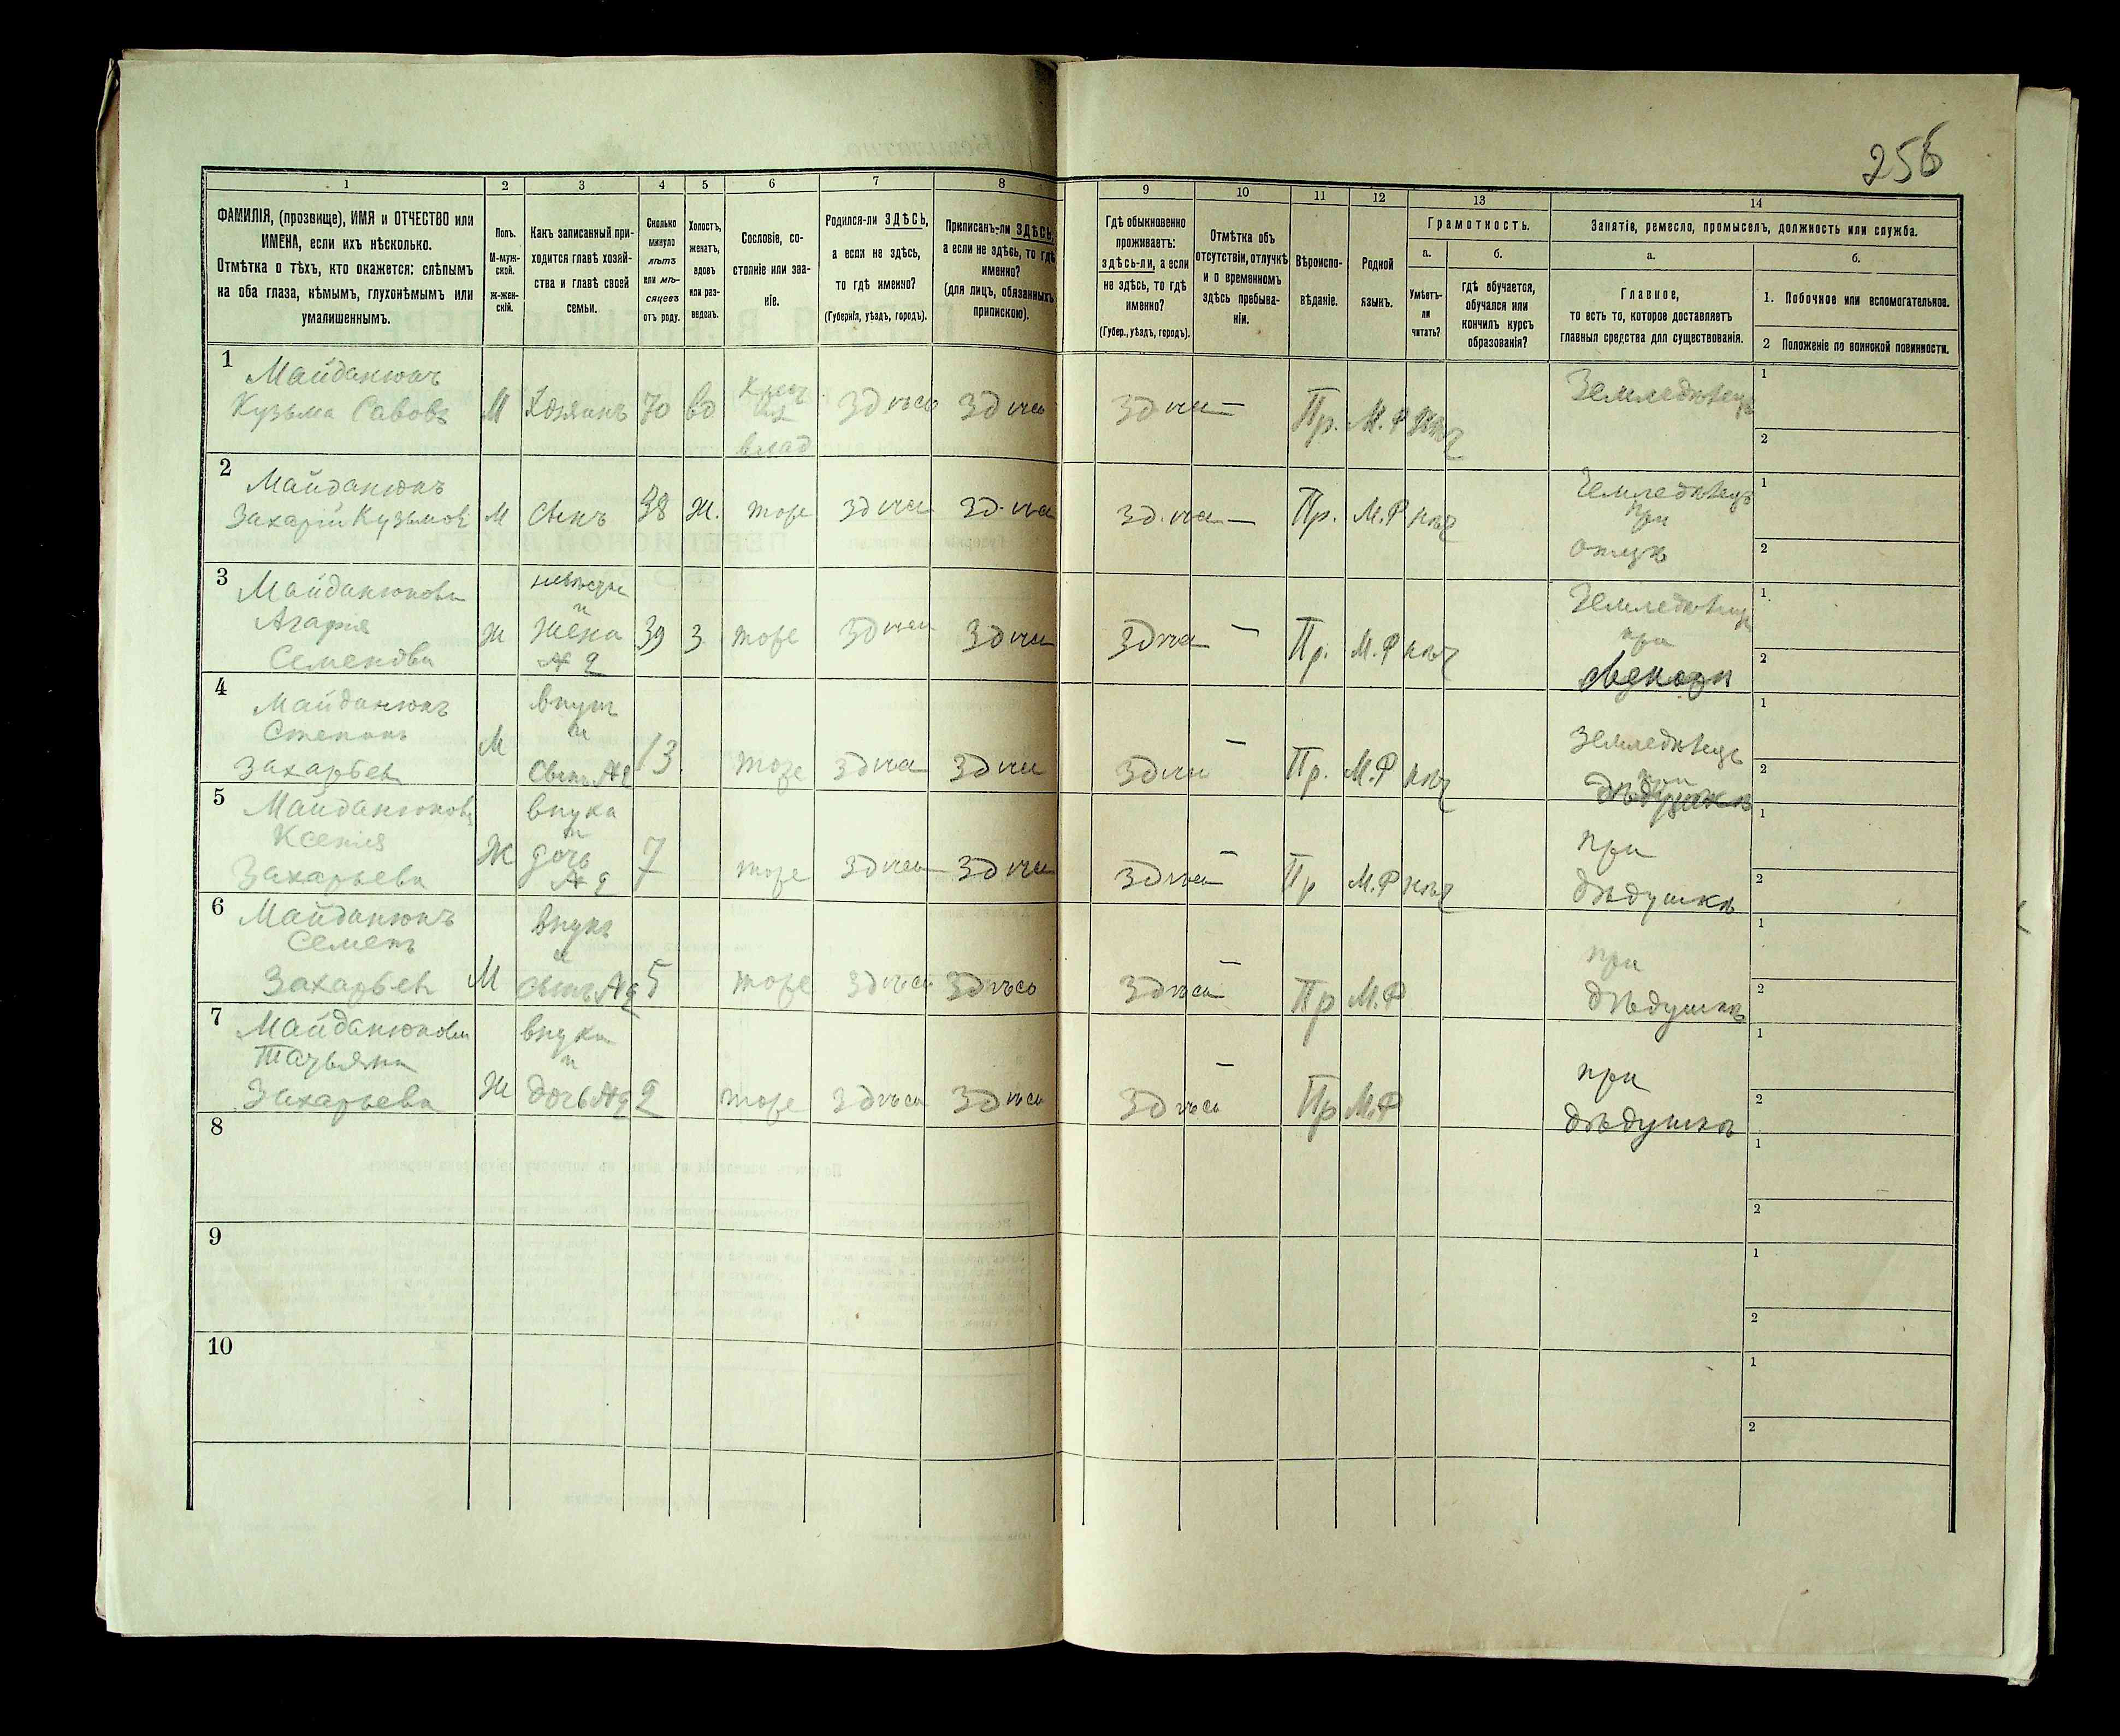 256
1
2
3
4
5
6
7
8
9
10
11
12
13
14
ФАМИЛІЯ, (прозвище), ИМЯ и ОТЧЕСТВО или
ИМЕНА, если ихъ нѣсколько.
Отмѣтка о тѣхъ, кто окажется: слѣпымъ
на оба глаза, нѣмымъ, глухонѣмымъ или
умалишеннымъ.
Полъ.
М-муж-
ской.
Ж-жен-
скій.
Какъ записанный при-
ходится главѣ хозяй-
ства и главѣ своей
семьи.
Сколько
минуло
лѣтъ
или мѣ-
сяцевъ
отъ роду.
Холостъ,
женатъ,
вдовъ
или раз-
веденъ.
Сословіе, со-
стояніе или зва-
ніе.
Родился-ли ЗДѢСЬ,
а если не здѣсь,
то гдѣ именно?
(Губернія, уѣздъ, городъ).
Приписанъ-ли ЗДѢСЬ,
а если не здѣсь, то гдѣ
именно?
(для лицъ, обязанныхъ
припискою).
Гдѣ обыкновенно
проживаетъ:
здѣсь-ли, а если
не здѣсь, то гдѣ
именно?
(Губер., уѣздъ, городъ).
Отмѣтка объ
отсутствіи, отлучкѣ
и о временномъ
здѣсь пребыва-
ніи.
Вѣроиспо-
вѣданіе.
Родной
языкъ.
Грамотность.
а.
Умѣетъ-
ли
читать?
б.
гдѣ обучается,
обучался или
кончилъ курсъ
образованія?
Занятія, ремесло, промыселъ, должность или служба.
а.
Главное,
то есть то, которое доставляетъ
главныя средства для существованія.
б.
1. Побочное или вспомогательное.
2 Положеніе по воинской повинности.
1
Майданюкъ
Кузьма Савовъ
М
Хозяинъ
70
вд
влад
здѣсь
здѣсь
здѣсь —
Пр.
М.Р
нѣт
Земледѣлецъ
1
2
2
Майданюкъ
Захарій Кузьмовъ
М
сынъ
38
Ж.
тоже
здѣсь
здѣсь
здѣсь —
Пр.
М.Р
нѣт
Земледѣлецъ
при
отцѣ
1
2
3
Майданюкова
Агафія
Семенова
Ж
невѣстка
и
жена
№ 2
39
З
тоже
здѣсь
здѣсь
здѣсь —
Пр.
М.Р
нѣт
Земледѣлецъ
при
1.
2
4
Майданюкъ
Степанъ
Захарьев
М
внукъ
и
сынъ №2
13
тоже
здѣсь
здѣсь
здѣсь —
Пр.
М.Р
нѣт
Земледѣлецъ
при
дѣдушкѣ
1
2
5
Майданюкова
Ксенія
Захарьева
Ж
внука
и
дочь
№ 2
7
тоже
здѣсь
здѣсь
здѣсь —
Пр
М.Р
нѣт
при
дѣдушкѣ
1
2
6
Майданюкъ
Семенъ
Захарьев
М
внукъ
и
сынъ №2
5
тоже
здѣсь
здѣсь
здѣсь —
Пр
М.Р
при
дѣдушкѣ
1
2
7
Майданюкова
Татьяна
Захарьева
Ж
внука
и
дочь №2
2
тоже
здѣсь
здѣсь
здѣсь —
Пр
М.Р
при
дѣдушкѣ
1
2
8
1
2
9
1
2
10
1
2